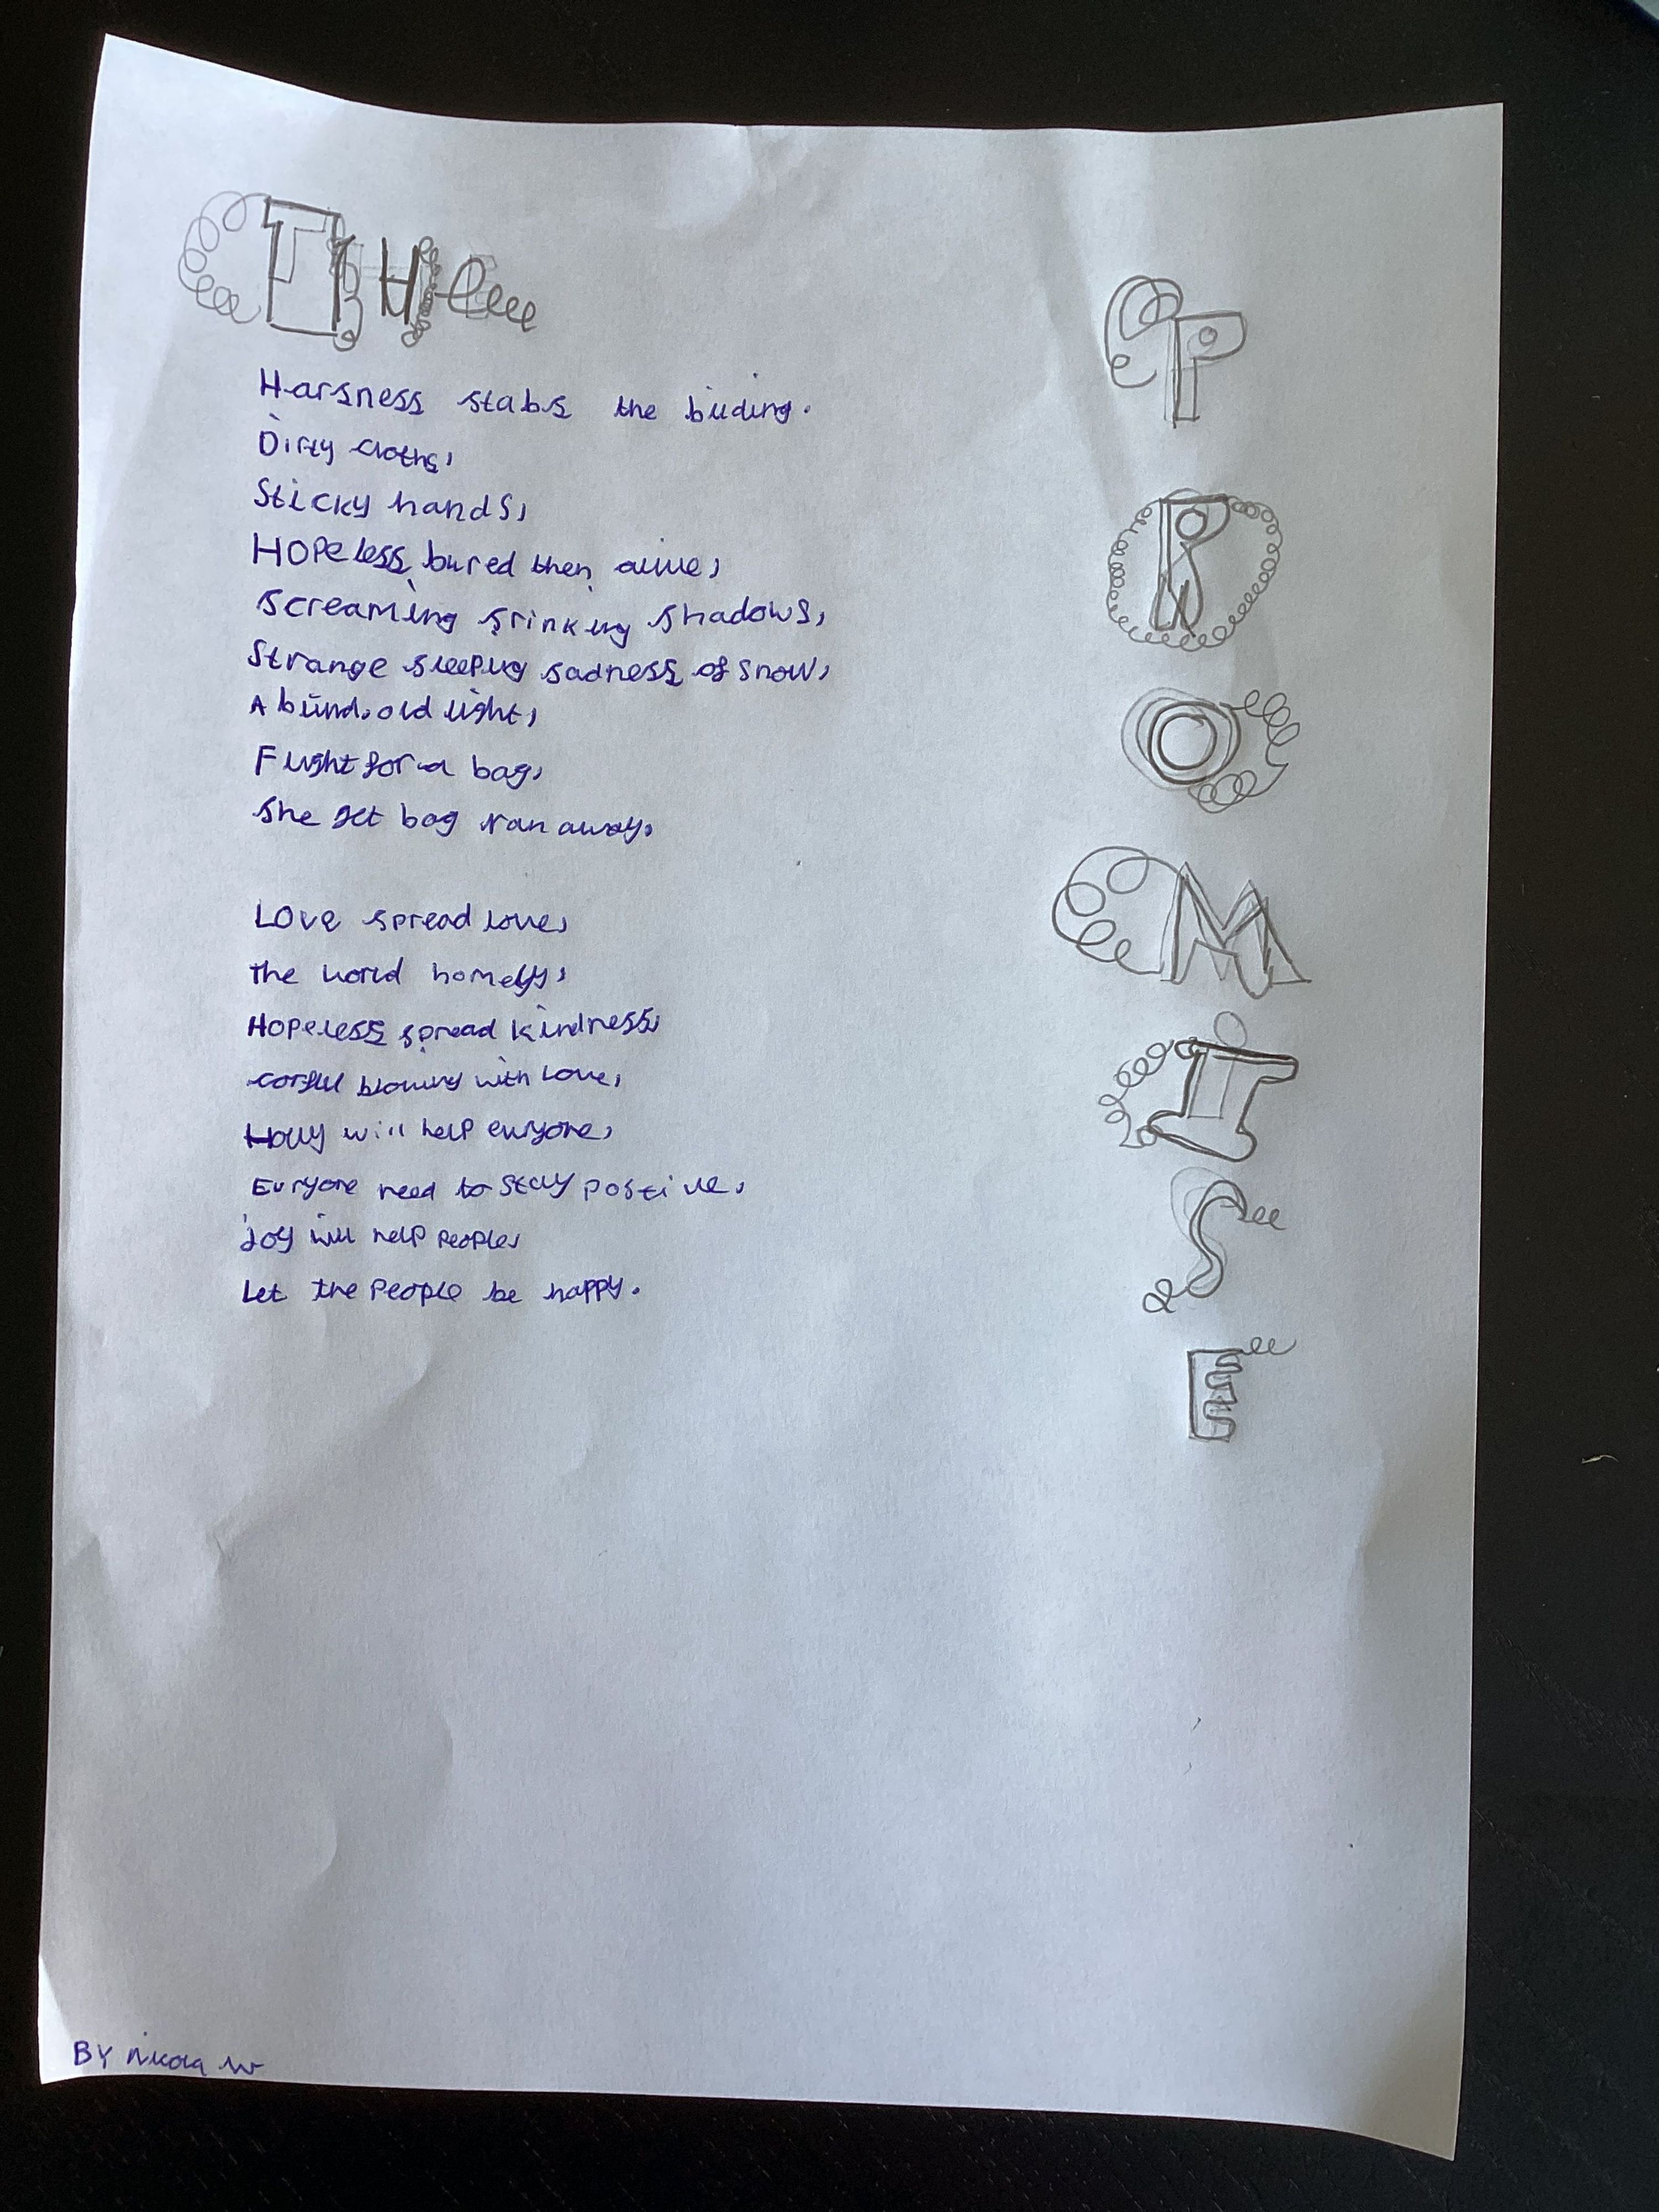 The
Harsness stabs the biuding.
Dirty cloths,
Sticky hands,
HOPeless bured then alive,
Screaming srinking shadows,
Strange sleeping sadness of snow,
A blind old light,
Flight for a bag,
She get bag ran away.
Love spread love,
the world homely,
Hopeless spread kindness,
blowing with Love,
Holly will help evryone,
Evryone need to stay postive,
joy will help people,
Let the People be happy.
P
R
O
M
I
S
E
BY nicola w